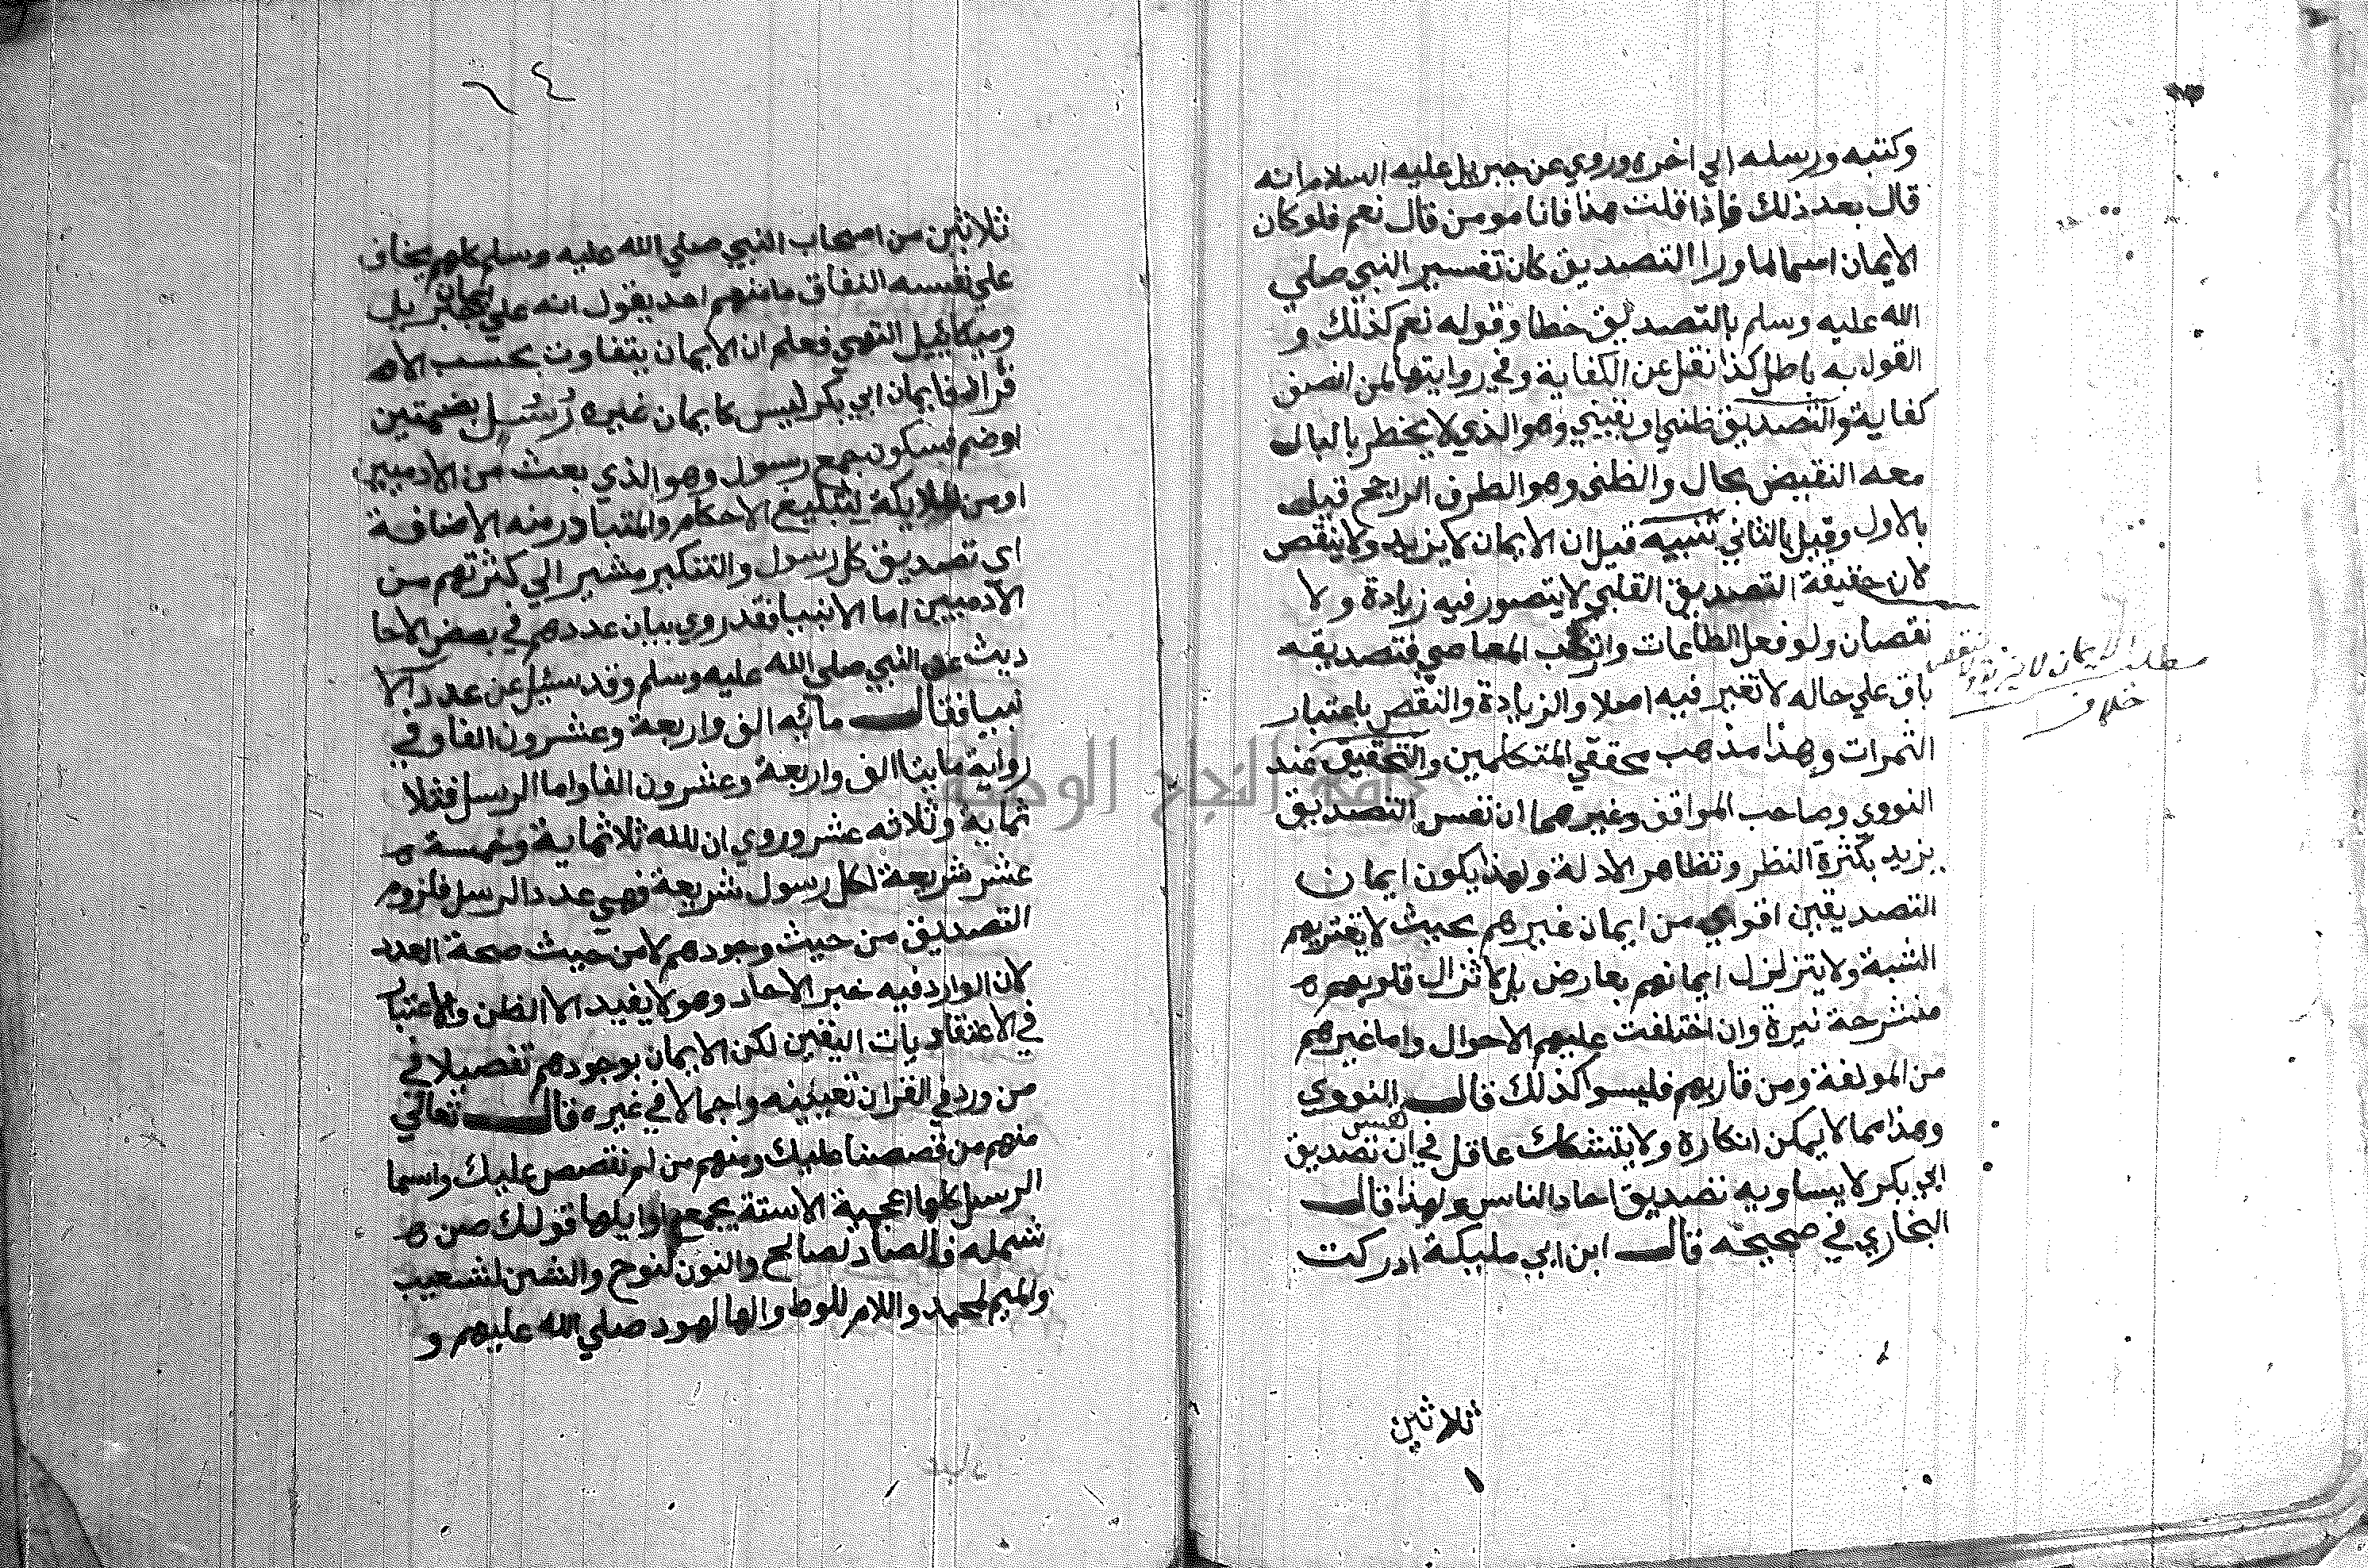 وكتبه ورسله الي اخره وروي عن جبريل عليه السلام انه
قال بعد ذلك فاذا قلت هذا فانا مومن قال نعم فلو كان
الايمان اسما لما ورا التصديق كان تفسير النبي صلي
الله عليه وسلم بالتصديق خطا وقوله نعم كذلك و
القول به باطل كذا نقل عن الكفاية وفي روايتها لمن انصف
كفاية والتصديق ظني او يقيني وهو الذي لا يخطر بالبال
معه النقيض بحال والظني وهو الطرف الراجح قيل
بالاول وقيل بالثاني تنبيه قيل ان الايمان لا يزيد ولا ينقص
لان حقيقة التصديق القلبي لا يتصور فيه زيادة ولا
نقصان ولو فعل الطاعات وارتكب المعاصي فتصديقه
باق علي حاله لا تغير فيه اصلا والزيادة والنقص باعتبار
الثمرات وهذا مذهب محققي المتكلمين والتحقيق عند
النووي وصاحب المواقف وغيرهما ان نفس التصديق
يزيد بكثرة النظر وتظاهر الادلة ولهذا يكون ايمان
التصديقين اقوي من ايمان غيرهم بحيث لا يعتريهم
الشبة ولا يتزلزل ايمانهم بعارض بل لا تزال قلوبهم ه
منشرحة نيرة وان اختلفت عليهم الاحوال واما غيرهم
من المولفة ومن قاربهم فليسوا كذلك قال النووي
وهذا مما لا يمكن انكاره ولا يتشكك عاقل في ان نفس تصديق
ابي بكر لا يساويه تصديق احاد الناس ولهذا قال
البخاري في صحيحه قال ابن ابي مليكة ادركت
ثلاثين
مطلب الايمان لا يزيد ولا ينقص
خلاف
٦٤
ثلاثين من اصحاب النبي صلي الله عليه وسلم كلهم يخاف
علي نفسه النفاق ما منهم احد يقول انه علي ايمان جبريل
وميكائيل انتهي فعلم ان الايمان يتفاوت بحسب الاه
فراد فايمان ابي بكر ليس كايمان غيره رسل بضمتين
او ضم فسكون جمع رسول وهو الذي بعث من الادميين
او من الملايكة لتبليغ الاحكام والمتبادر منه الاضافة
اي تصديق كل رسول والتنكير مشير الي كثرتهم من
الآدميين اما الانبيا فقد روي بيان عددهم في بعض الاحا
ديث عن النبي صلي الله عليه وسلم وقد سئيل عن عدد الا
نبيا فقال مائه الف واربعة وعشرون الفا وفي
رواية مايتا الف واربعة وعشرون الفا واما الرسل فثلا
ثماية وثلاثه عشر وروي ان لله ثلاثماية وخمسة ه
عشر شريعة لكل رسول شريعة فهي عدد الرسل فلزوم
التصديق من حيث وجودهم لا من حيث صحة العدد
لان الوارد فيه خبر الاحاد وهو لا يفيد الا الظن والاعتبار
في الاعتقاديات اليقين لكن الايمان بوجودهم تفصيلا في
من ورد في القران تعيينه واجمالا في غيره قال تعالي
منهم من قصصنا عليك ومنهم من لم نقصص عليك واسما
الرسل كلها اعجمية الا ستة يجمع اوايلها قولك صن ه
شمله فالصاد لصالح والنون لنوح والشين لشعيب
والميم لمحمد واللام للوط والها لهود صلي الله عليهم و
جامعة النجاح الوطنية